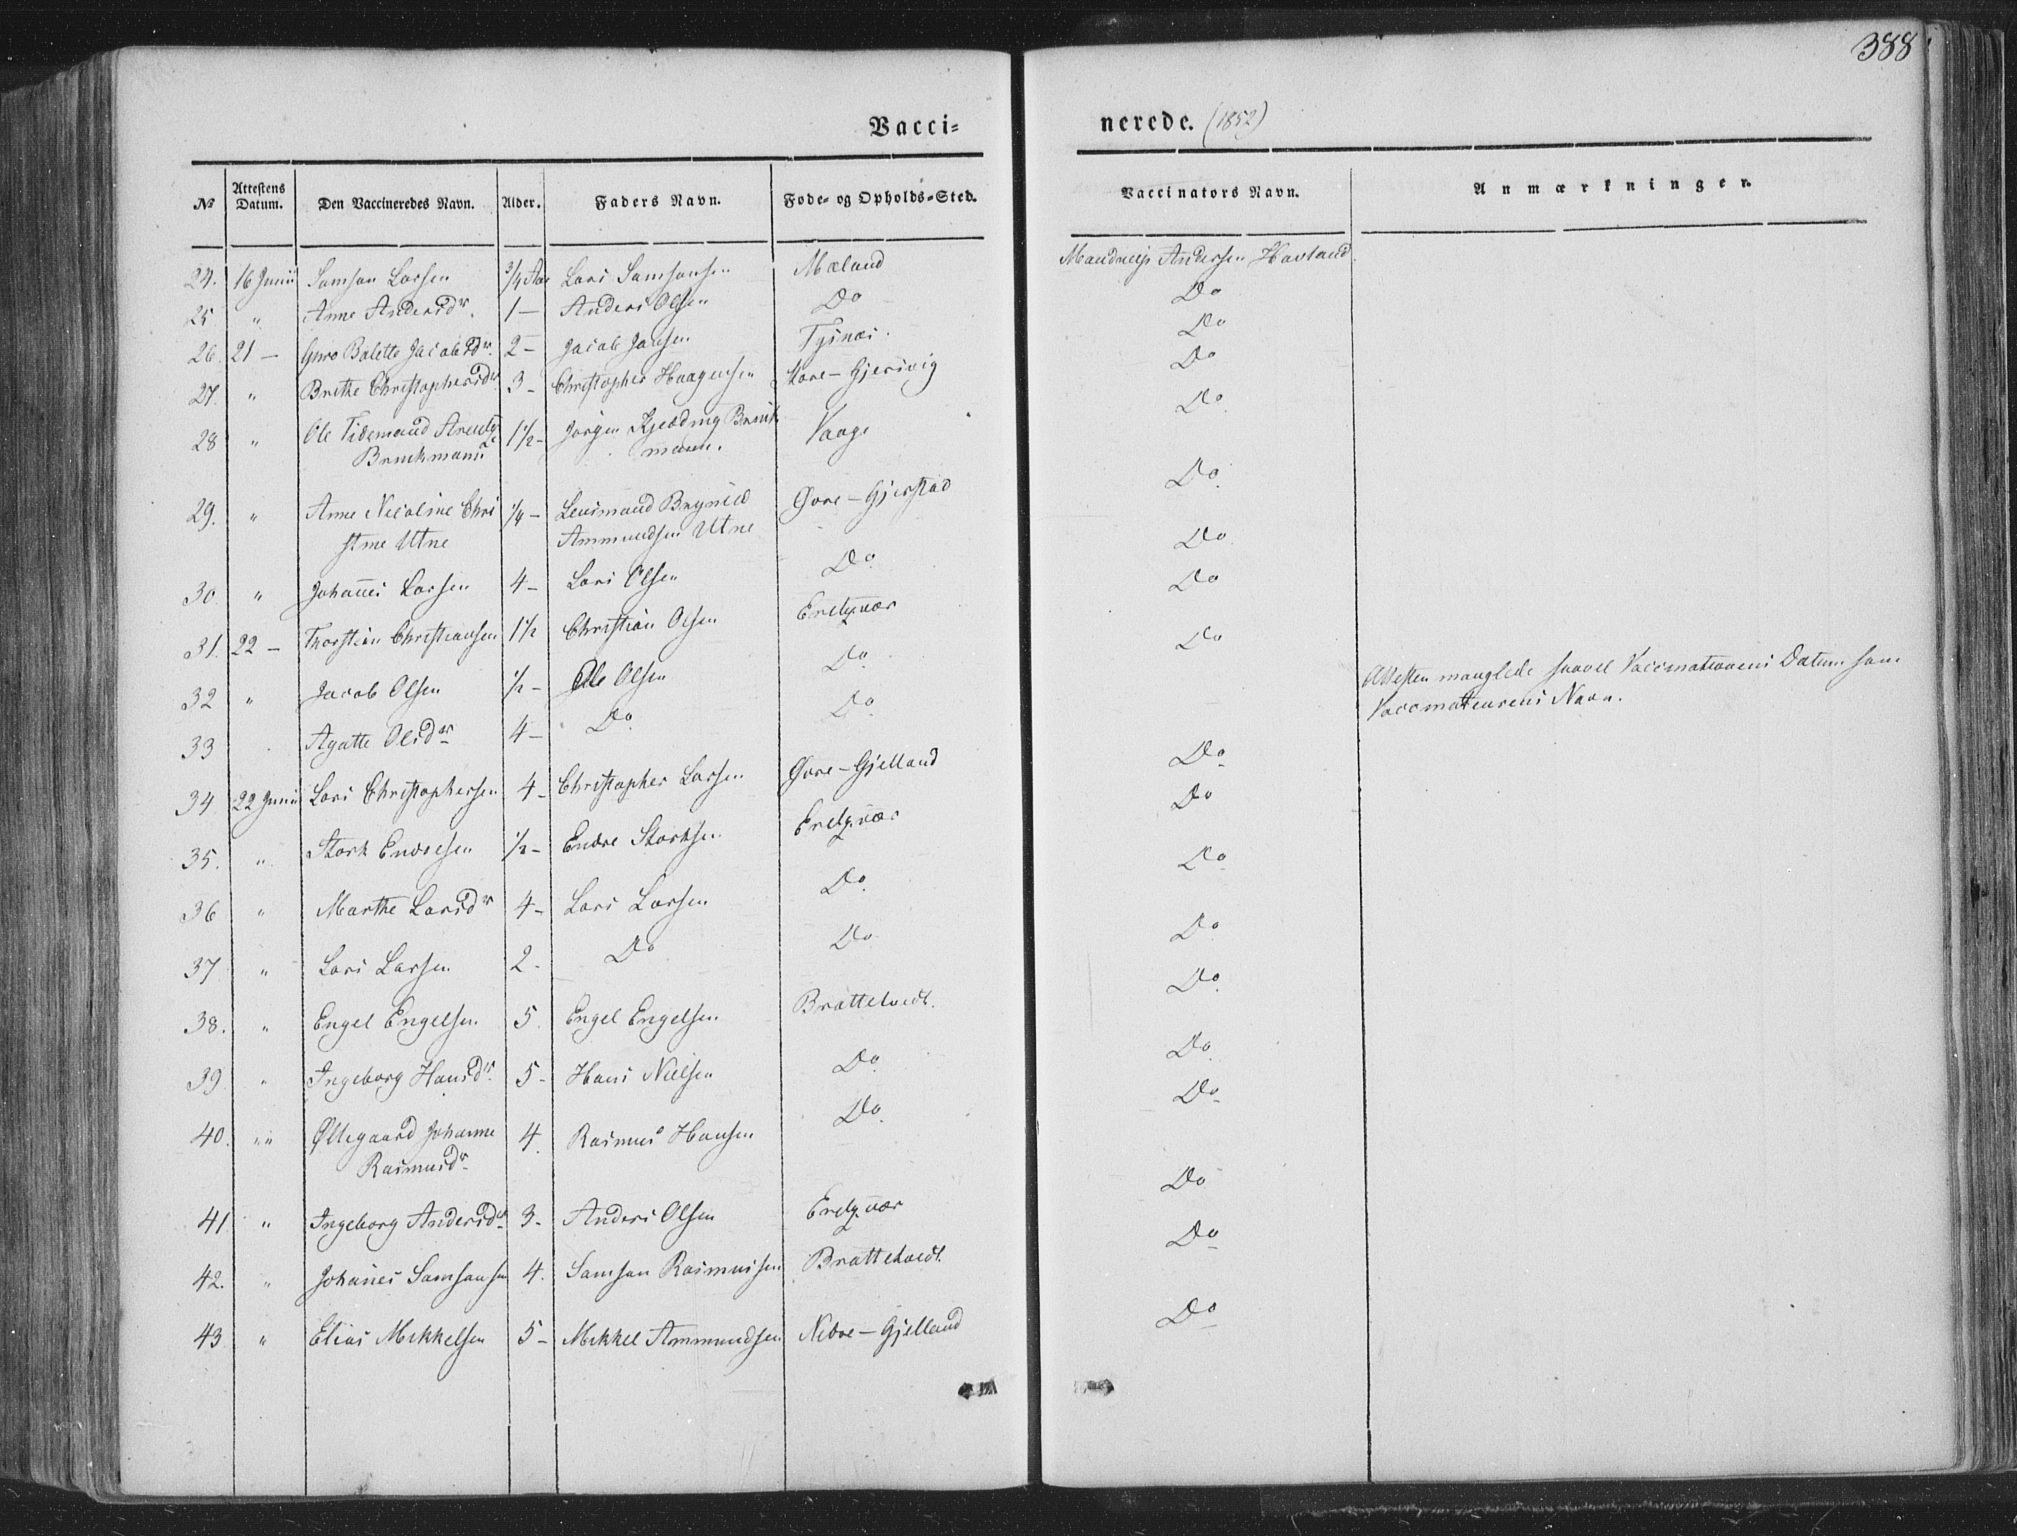 388
Vacci-
nerede. (1852)
№ | Attestens Datum. | Den Vaccineredes Navn. | Alder. | Faders Navn. | Føde- og Opholds-Sted. | Vaccinators Navn. | Anmærkninger.
24. | 16 Junii | Samson Larsen | 3/4 Aar | Lars Samsonsen | Mæland | Mandrup Andersen Havland
25 | " | Anne Andersdr. | 1 – | Anders Olsen | Do | Do
26. | 21 – | Guro Bolette Jacobsdr. | 2 – | Jacob Jansen | Tysnæs. | Do
27. | " | Brithe Christophersdr | 3 – | Christopher Haagensen | Gjersvig | Do
28 | " | Ole Tidemand | 1½ – | Jørgen Brinck | Vaage | Do
Brinckmann | mann.
29. | " | Anne Nicoline Chri | ¼ – | Lensmand Brynild | Øvre – Gjerstad | Do.
stine Utne | Ammundsen Utne
30. | " | Johañes Larsen | 4 – | Lars Olsen | Do. | Do
31. | 22 – | Thorstein Christiansen | 1½ | Christian Olsen | | Do
32 | " | Jacob Olsen | ½ – | Ole Olsen | Do. | Do
33 | Agatte Olsdr | 4 – | Do. | Do. | Attesten manglede saavel Vaccinationens Datum som
Vaccinateurens Navn.
34 | 22 Junii | Lars Christophersen | 4 – | Christopher Larsen | Øvre – Gjelland | Do
35. | " | Stork Endresen | ½ – | Endre Storksen | | Do
36 | " | Marthe Larsdr | 4 – | Lars Larsen | Do. | Do
37 | " | Lars Larsen | 2 – | Do | Do | Do
38. | " | Engel Engelsen | 5. | Engel Engelsen | Brattetvedt. | Do.
39 | " | Ingeborg Hansdr. | 5 – | Hans Nielsen | Do. | Do.
40. | " " | Øllegaard Johanne | 4. | Rasmus Hansen | Do. | Do
Rasmusdr
41 | " | Ingeborg Andersdr | 3 – | Anders Olsen | | Do
42. | " | Johañes Samsonsen | 4. | Samson Rasmussen | Brattetvedt. | Do
43 | " | Elias Mikkelsen | 5 – | Mikkel Ammundsen | Nedre – Gjelland | Do